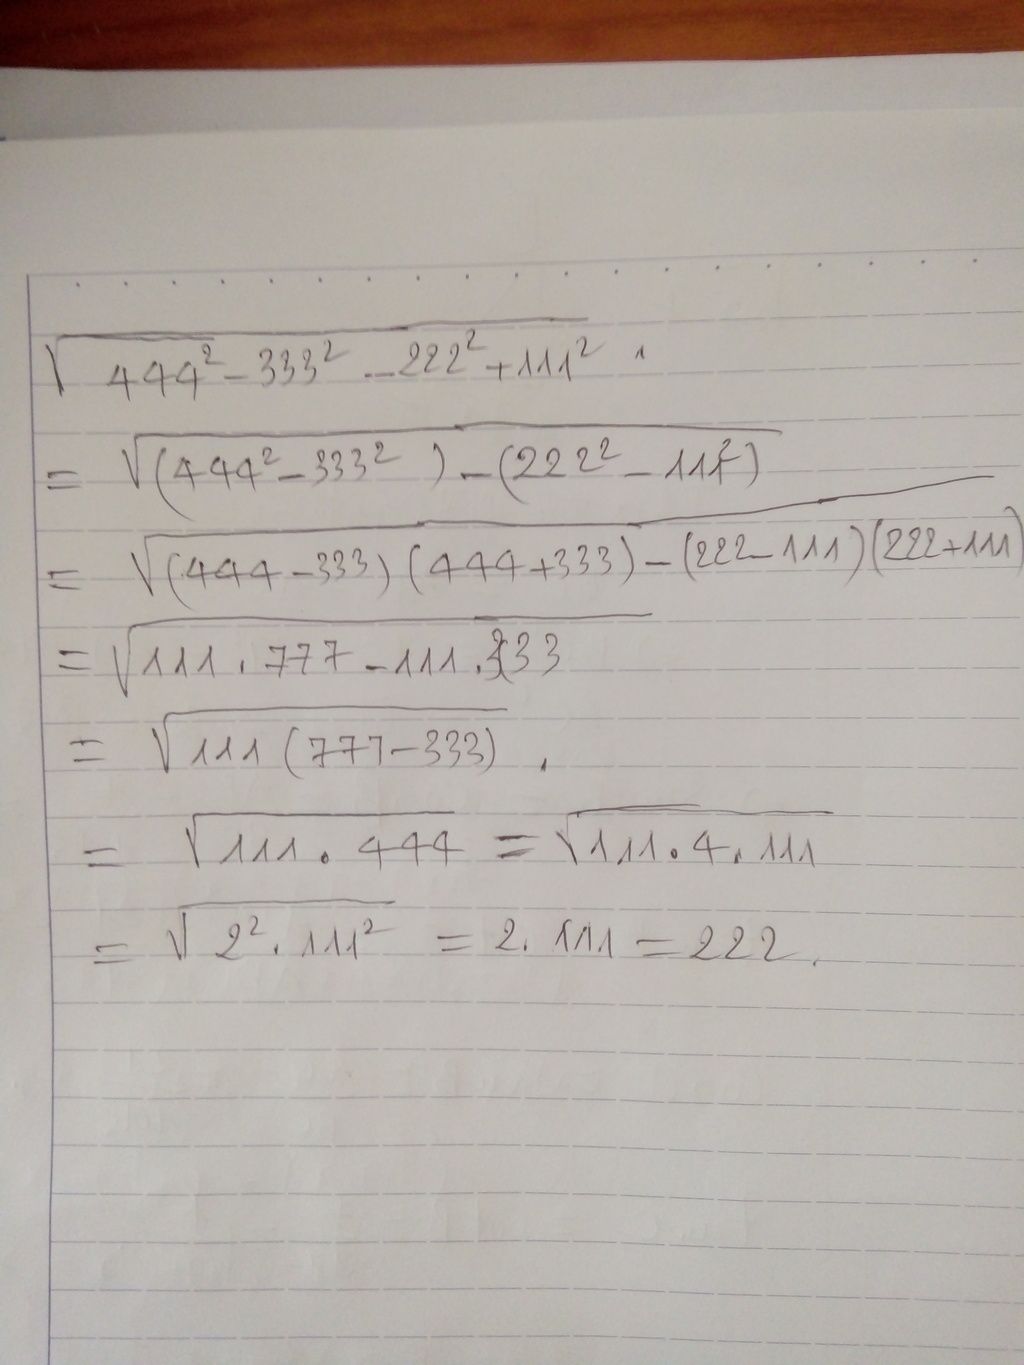 √(444² - 333² - 222² + 111²) .
= √((444² - 333²) - (222² - 111²))
= √((444 - 333)(444 + 333) - (222 - 111)(222 + 111))
= √(111 . 777 - 111 . 333)
= √(111(777 - 333)) .
= √(111 . 444) = √(111 . 4 . 111)
= √(2² . 111²) = 2 . 111 = 222 .